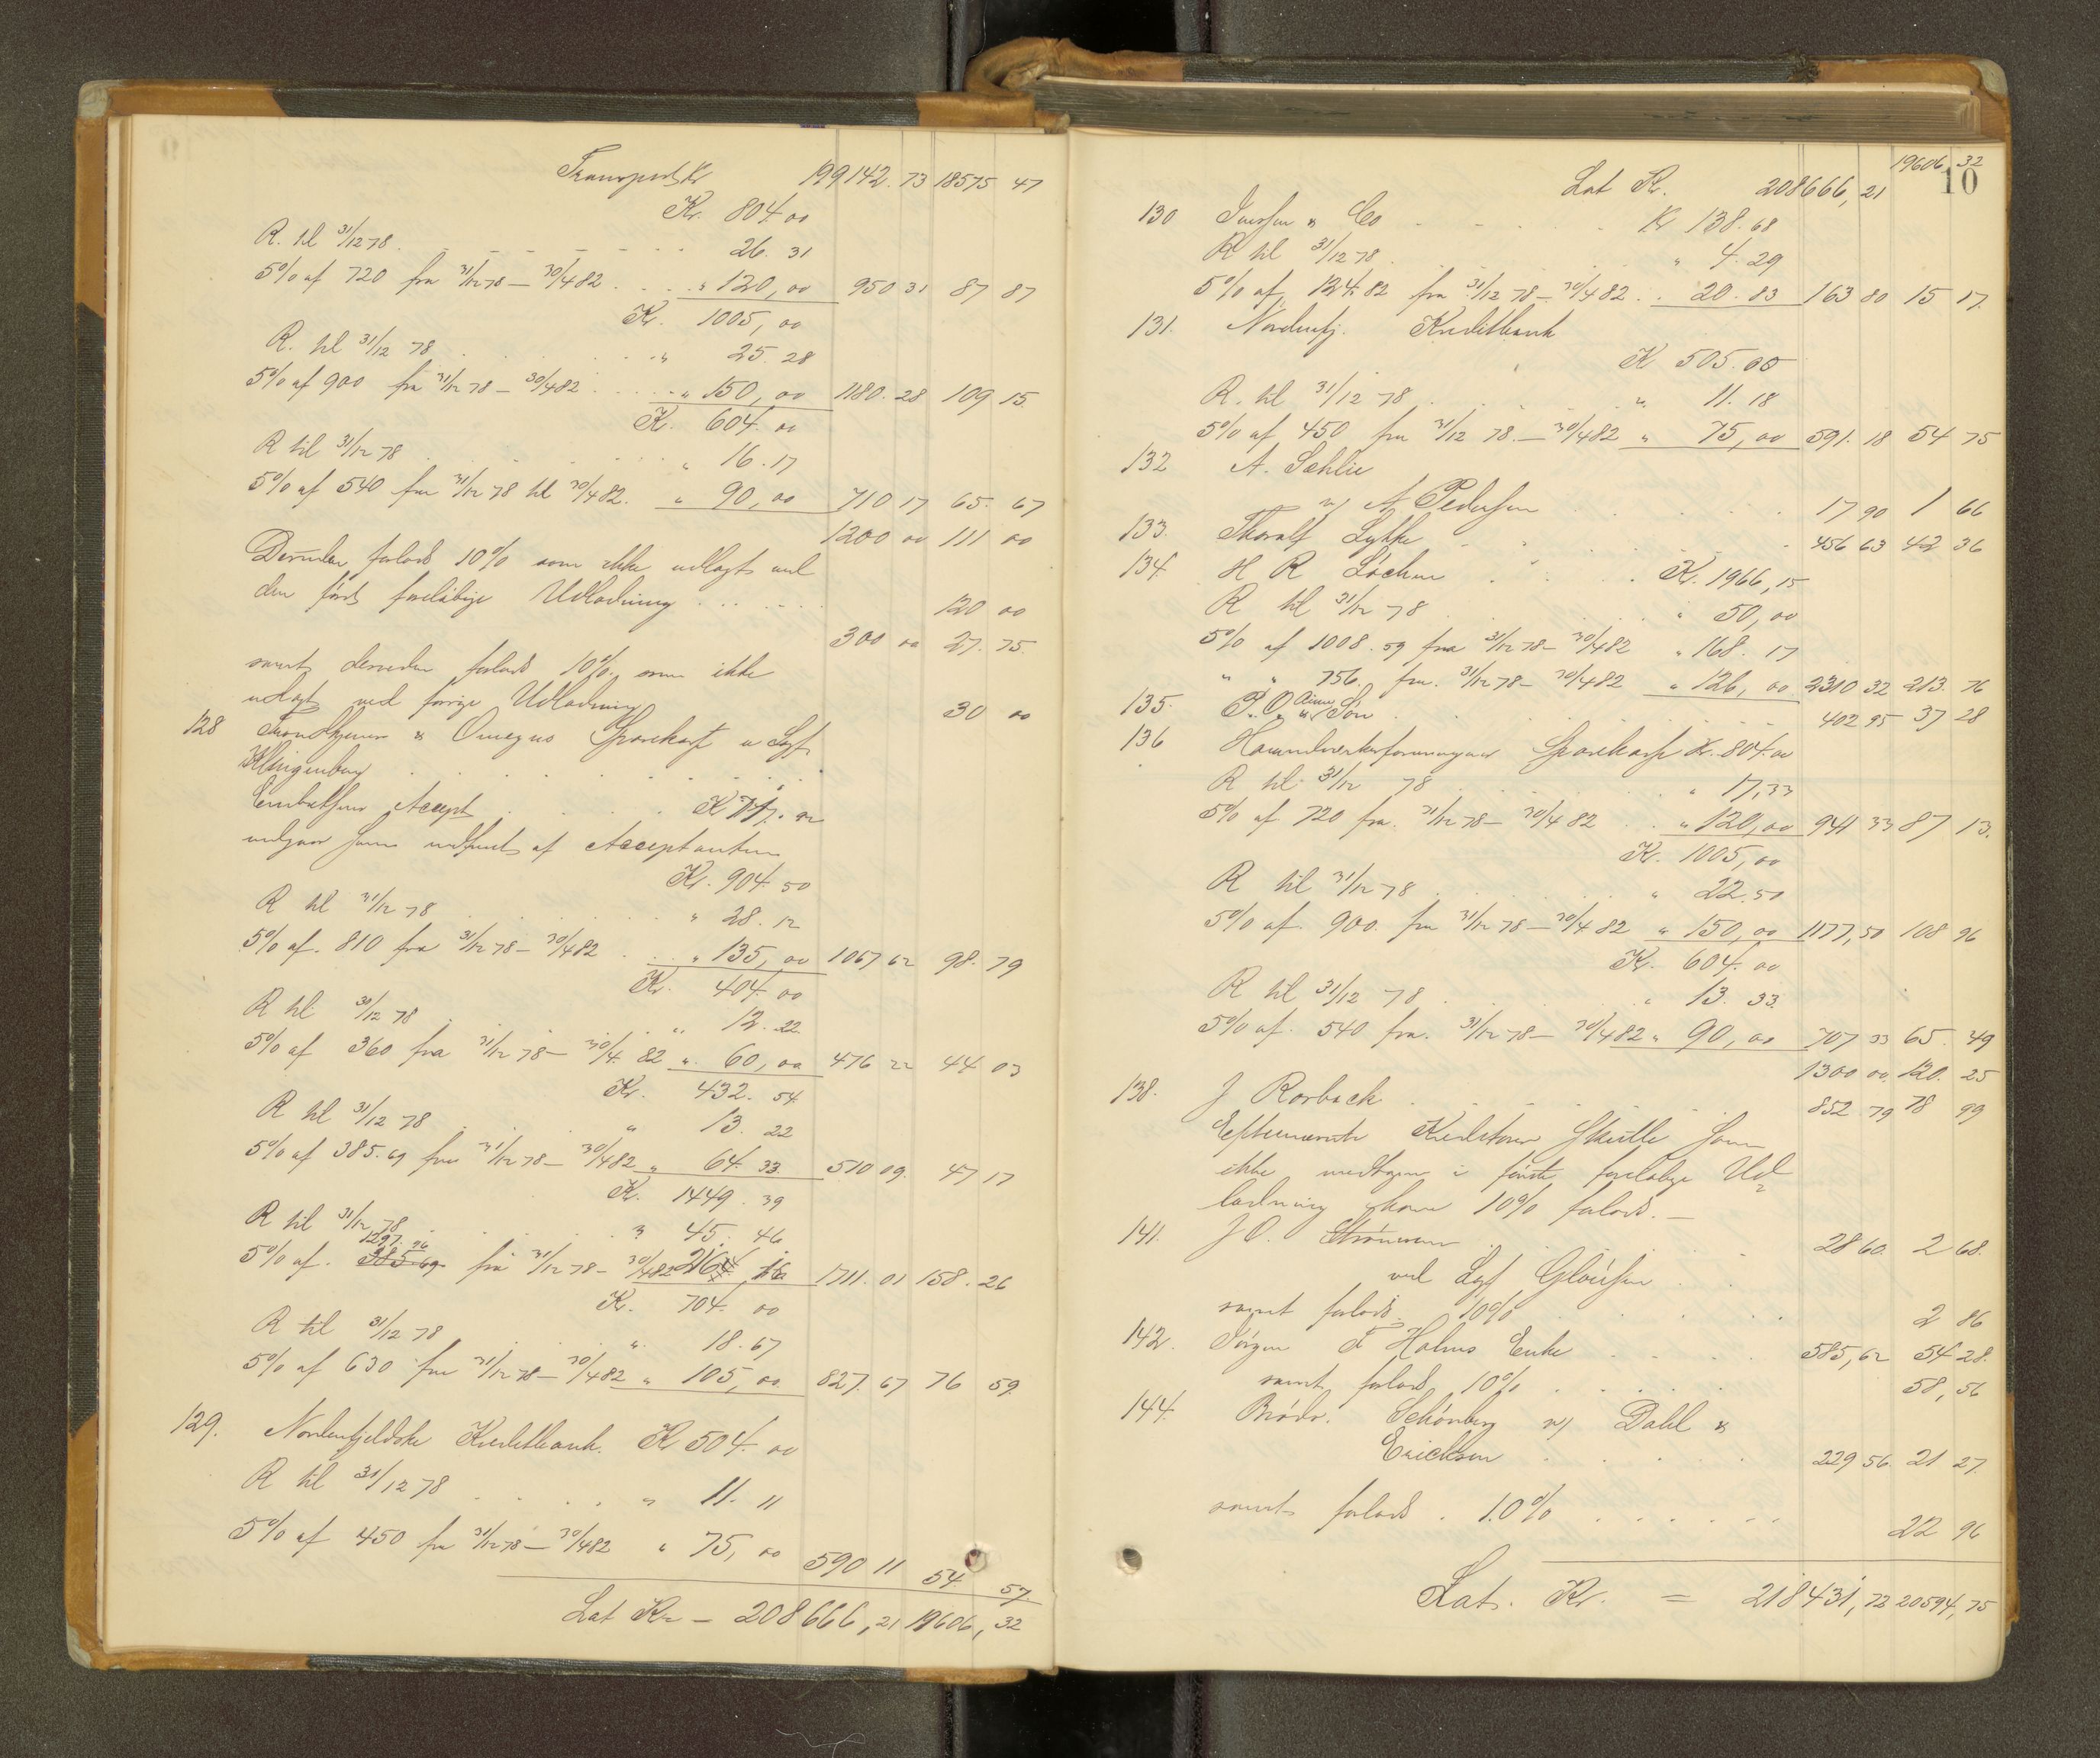 Transport Kr 199142.73 18575 47
Kr. 804.00
R. til 31/12 78 . . . . . 26. 31
5% af 720 fra 31/12 78 – 30/4 82 . . . " 120,00 950 31 87 87
Kr. 1005,00
R. til 31/12 78 . . . . " 25.28
5% af 900 fra 31/12 78 – 30/4 82 . . . " 150,00 1180.28 109 15
Kr. 604.00
R til 31/12 78 . . . . " 16.17
5% af 540 fra 31/12 78 til 30/4 82. " 90,00 710 17 65. 67
1200 00 111 00
Desuden forlods 10% som ikke udlagt ved
den förste foreløbige Udlodning . . . . . 120 00
300 00 27. 75.
samt desuden forlods 10%. som ikke
udlagt ved forrige Udlodning 30 00
128 Trondhjems & Omegns Sparekasse v Sagf
Klingenberg . . . . . . . .
Accept . . . . Kr
udgaar som indfriet af Acceptanten
Kr. 904.50
R til 31/12 78 . . . . " 28.12
5% af. 810 fra 31/12 78 – 30/4 82 . . " 135,00 1067 62 98. 79
Kr. 404.00
R til 31/12 78 . . . . " 12. 22
5% af 360 fra 31/12 78 – 30/4. 82 ". 60,00 476 22 44 03
Kr. 432. 54
R til 31/12 78 . . . . " 13. 22
5% af 385.69 fra 31/12 78 – 30/4 82 " 64. 33 510 09. 47 17
K. 1449. 39
R til 31/12 78 . . . . " 45. 46
1297. 96
5% af. 385 69 fra 31/12 78 – 30/4 82 216 16 1711. 01 158. 26
Kr. 704. 00
R til 31/12 78 . . . . " 18.67
5% af 630 fra 31/12 78 – 30/4 82 " 105,00. 827. 67 76 59.
129. Nordenfjeldske Kreditbank. Kr 504.00
R til 31/12 78 . . . . " 11. 11
5% af 450 fra 31/12 78 – 30/4 82 " 75,00 590 11 54 57.
Lat Kr – 208666,21 19606,32
19606,32
10
Lat Kr. 208666,21
130 & Co . . . . . Kr 138.68
R til 31/12 78 . . . . " 4.29
5% af. 124.82 fra 31/12 78 – 30/4 82 . . 20.83 163 80 15 17.
131. Nordenfj. Kreditbank
K 505.00
R. til 31/12 78 . . . . ". 11.18
5% af 450 fra 31/12 78. – 30/4 82 " 75,00 591. 18 54 75
132 A. Sehlie
v/ A Pedersen . . . . . 17 90 1 66
133. Thoralf Lykke . . . . . 456 63 42 36
134. H R Löchen . . . . Kr. 1966,15
R til 31/12 78 . . . . " 50,00
5% af 1008.59 fra 31/12 78 – 30/4 82 " 168. 17
" " 756. fra. 31/12 78 – 30/4 82 " 126,00 2310 32 213. 76
135. P. O. Aune & Sön . . . . . 402 95 37 28
136 Haandværkerforeningens Sparekasse Kr. 804.00
R til 31/12 78 . . . . " 17,33
5% af 720 fra. 31/12 78 – 30/4 82 . . " 120,00 941 33 87 13.
Kr. 1005,00
R til 31/12 78 . . . . " 22.50
5% af. 900. fra 31/12 78 – 30/4 82 " 150,00 1177,50 108 96
Kr. 604.00
R til 31/12 78 . . . . " 13. 33.
5% af. 540 fra. 31/12 78 – 30/4 82 " 90,00 707 33 65. 49
1300 00. 120. 25
138. J Rorback . . . . . 852 79 78 99
Efternævnte Kreditorer Skulle som
ikke medtagen i förste foreløbige Ud-
lodning have 10% forlods. –
141. J O. Strömmen . . . . . 28 60. 2 68.
ved Sagf Glöersen . . .
samt forlods. 10% . . . . . 2 86
142. Jörgen F Holms Enke . . . . 585,62 54 28.
samt forlods 10% . . . . . 58,56
144. Brödr. Schönberg v/ Dahl &
Ericksen . . . . . 229 56. 21 27.
samt forlods. 10% . . . . . 22 96
Lat. Kr. = 218431,72 20594,75